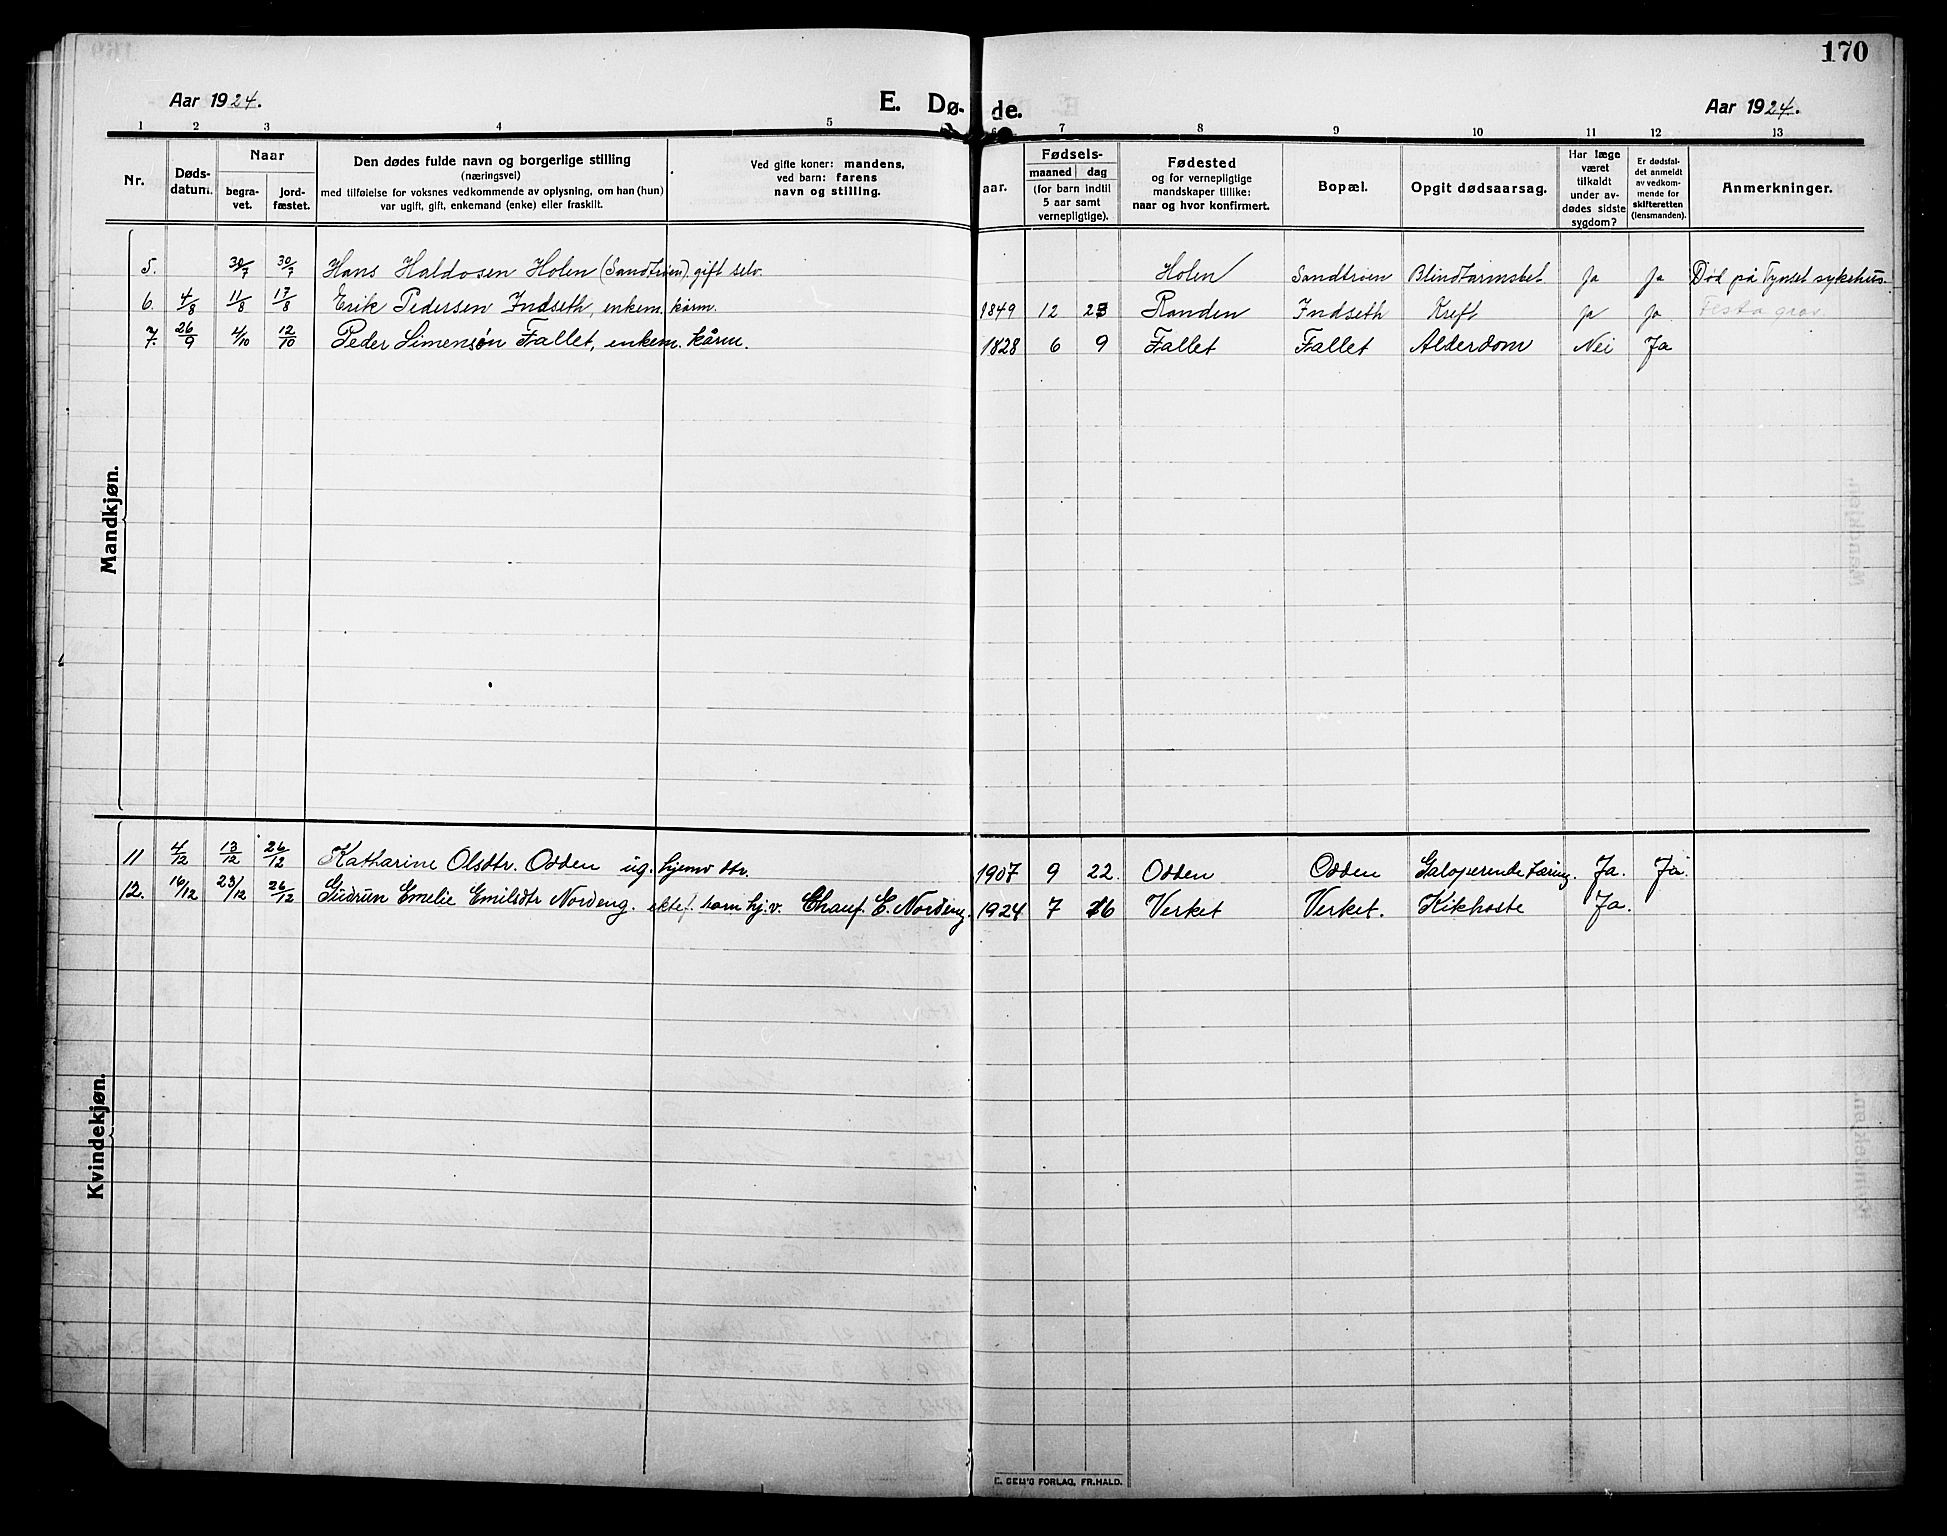 170
Aar 1924.
E. Dø- de.
Aar 1924.
1 2 3 4 5 6 7 8 9 10 11 12 13
Nr.
Døds-
datum.
Naar
begra-
vet.
jord-
fæstet.
Den dødes fulde navn og borgerlige stilling
(næringsvei)
med tilføielse for voksnes vedkommende av oplysning, om han (hun)
var ugift, gift, enkemand (enke) eller fraskilt.
Ved gifte koner: mandens,
ved barn: farens
navn og stilling.
aar.
Fødsels-
maaned dag
(for barn indtil
5 aar samt
vernepligtige).
Fødested
og for vernepligtige
mandskaper tillike:
naar og hvor konfirmert.
Bopæl.
Opgit dødsaarsag.
Har læge
været
tilkaldt
under av-
dødes sidste
sygdom?
Er dødsfal-
det anmeldt
av vedkom-
mende for
skifteretten
(lensmanden).
Anmerkninger.
Mandkjøn.
5. 30/7 30/7 Hans Haldosen Holen (Sandtrøen). gift selv. Holen Sandtrøen Blindtarmsbet. Ja Ja Død på Tynset sykehus.
6. 4/8 11/8 17/8 Erik Pedersen Indseth, enkem. kårm. 1849 12 23 Randen Indseth Kreft Ja Ja Festa grav.
7. 26/9 4/10 12/10 Peder Simensøn Fallet, enkem. kårm. 1828 6 9 Fallet Fallet Alderdom Nei Ja
Kvindekjøn.
11 4/12 13/12 26/12 Katharine Olsdtr. Odden ug. hjemv dtr. 1907 9 22. Odden Odden Galoperende tæring. Ja. Ja.
12. 16/12 23/12 26/12 Gudrun Emelie Emilsdtr Nordeng. ektef. barn hj.v. Chauf. E. Nordeng. 1924 7 26 Verket Verket. Kikhoste Ja.
FORLAG, FR. HALD.